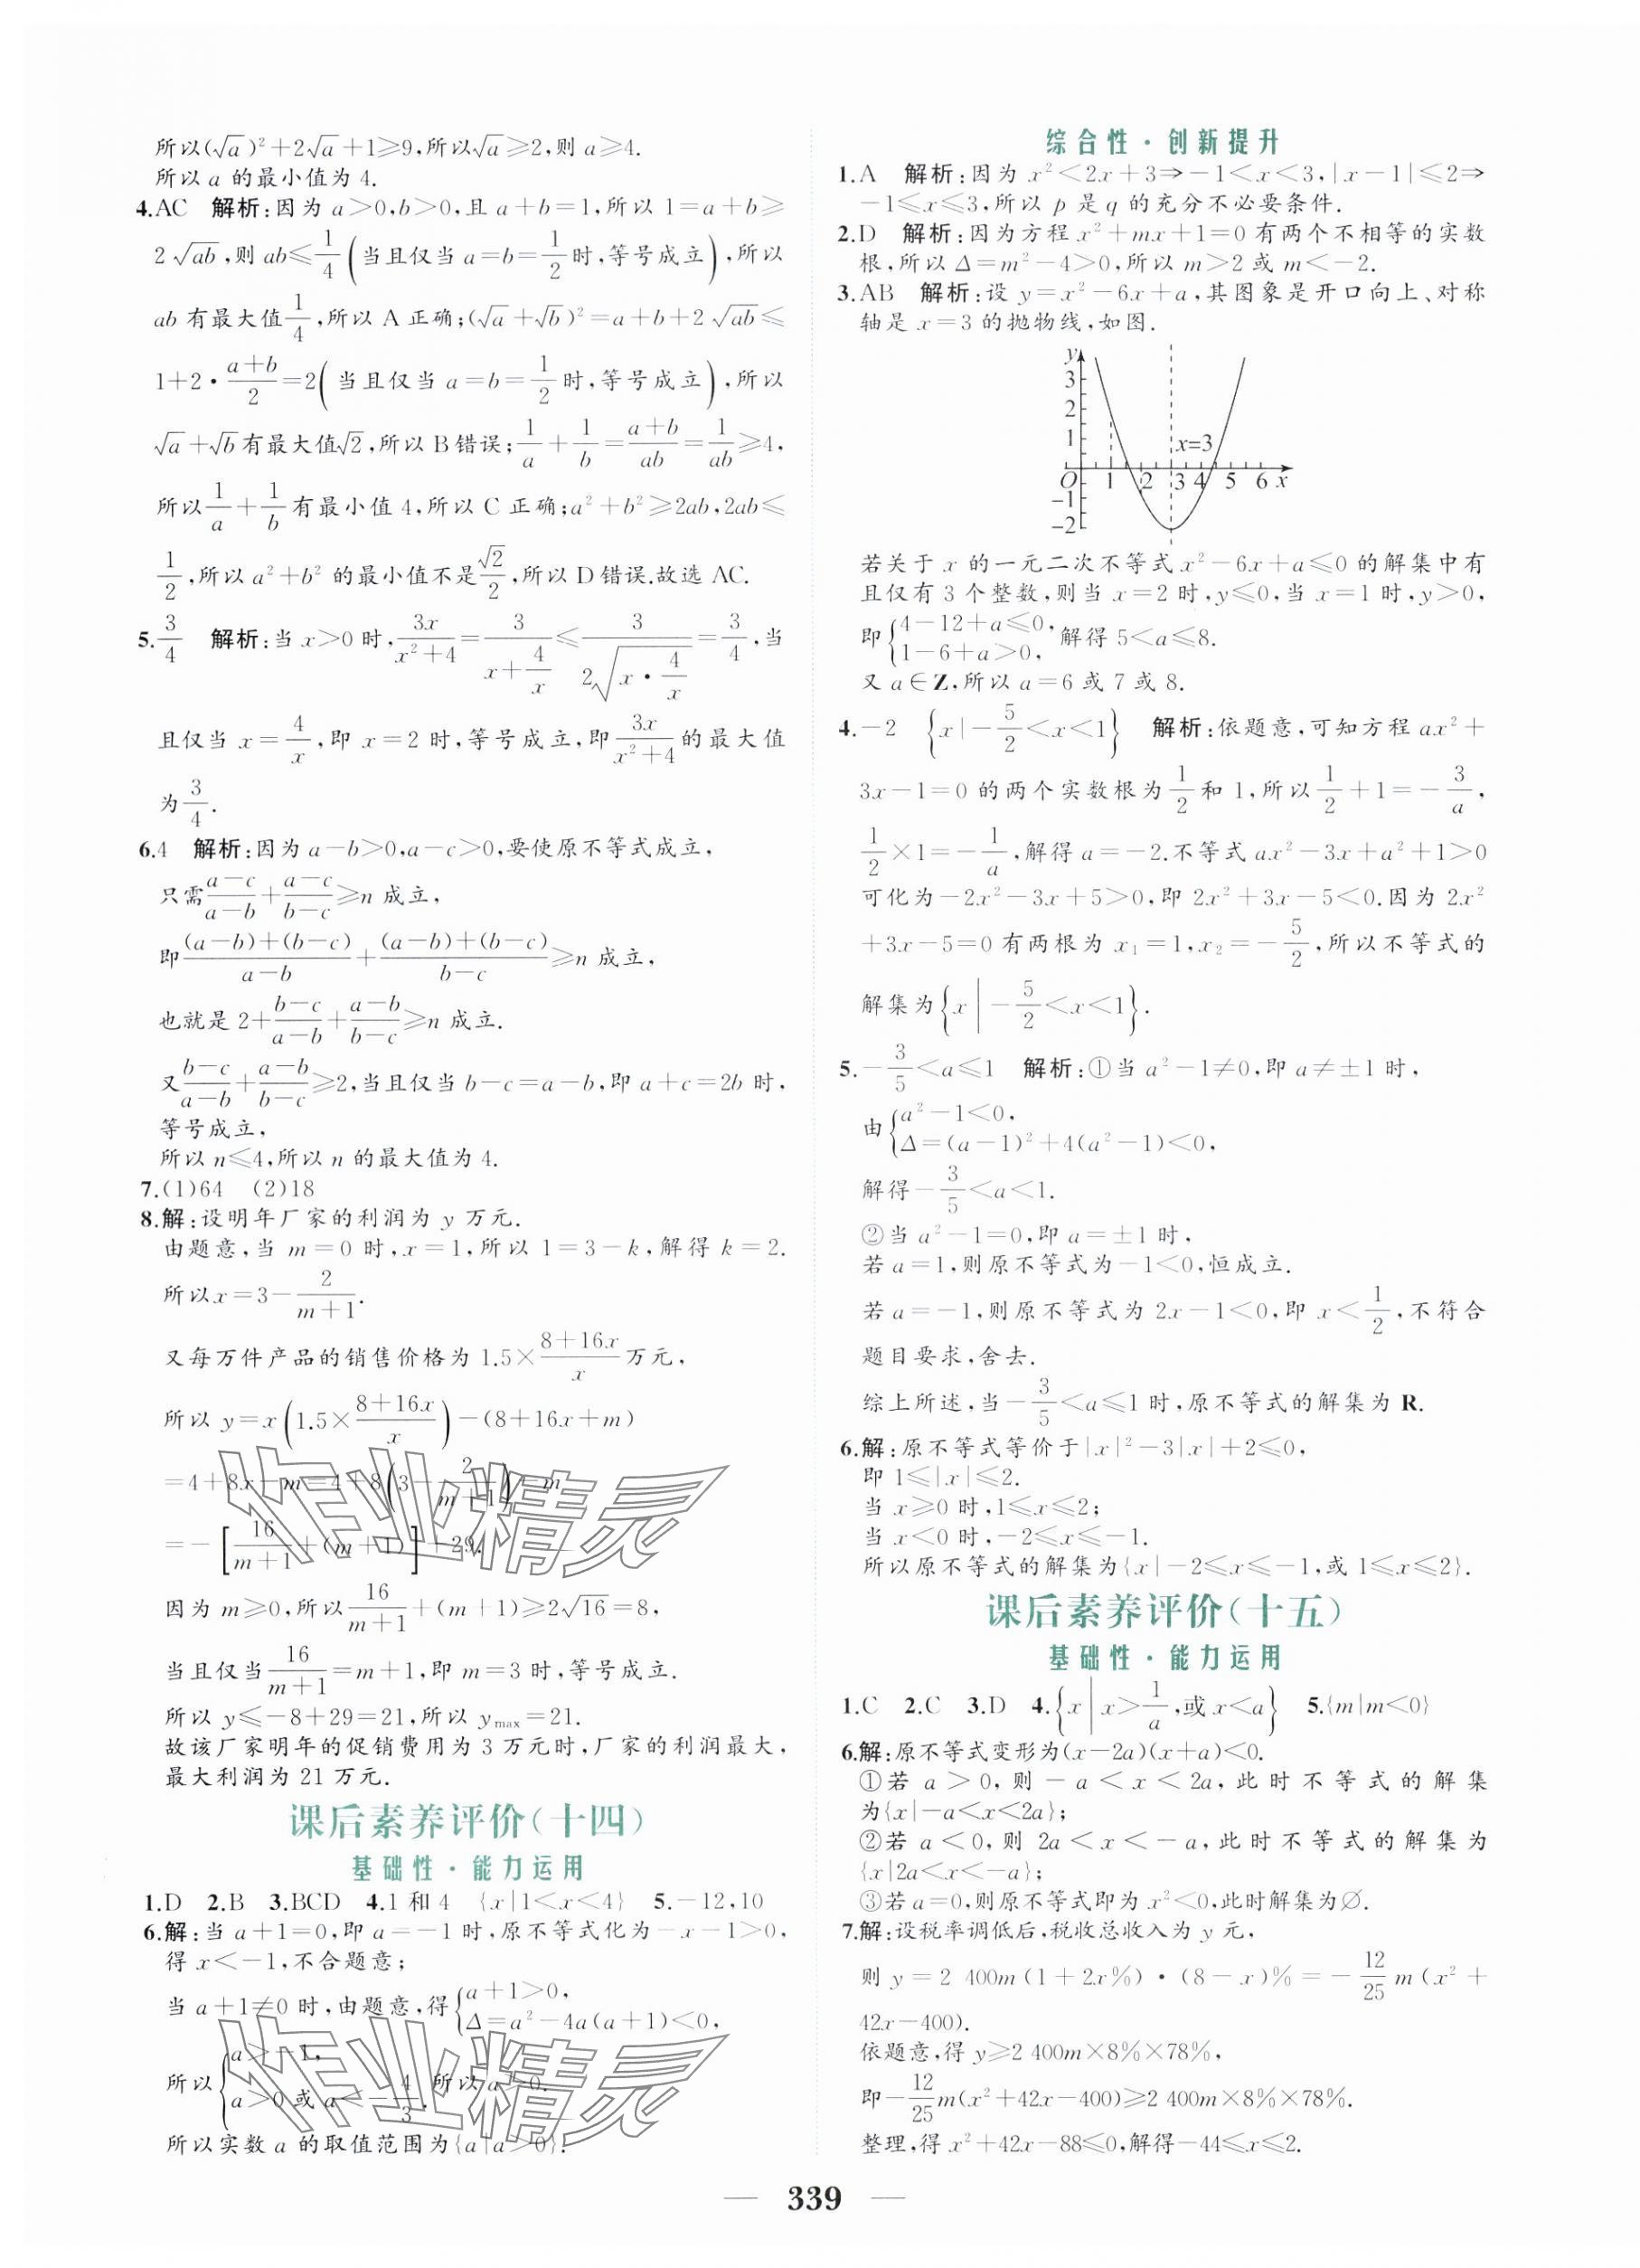 所以(√a)²+2√a+1≥9,所以√a≥2,则 a≥4.
所以 a 的最小值为 4.
4.AC 解析:因为 a>0,b>0,且 a+b=1,所以 1=a+b≥
2√ab,则 ab≤1/4(当且仅当 a=b=1/2时,等号成立),所以
ab 有最大值1/4,所以 A 正确;(√a+√b)²=a+b+2√ab≤
1+2·(a+b)/2=2(当且仅当 a=b=1/2时,等号成立),所以
√a+√b有最大值√2,所以 B 错误;1/a+1/b=(a+b)/ab=1/ab≥4,
所以1/a+1/b有最小值 4,所以 C 正确;a²+b²≥2ab,2ab≤
1/2,所以 a²+b² 的最小值不是√2/2,所以 D 错误.故选 AC.
5.3/4 解析:当 x>0 时,3x/(x²+4)=3/(x+4/x)≤3/(2√(x·4/x))=3/4,当
且仅当 x=4/x,即 x=2 时,等号成立,即3x/(x²+4)的最大值
为3/4.
6.4 解析:因为 a-b>0,a-c>0,要使原不等式成立,
只需(a-c)/(a-b)+(a-c)/(b-c)≥n 成立,
即((a-b)+(b-c))/(a-b)+((a-b)+(b-c))/(b-c)≥n 成立,
也就是 2+(b-c)/(a-b)+(a-b)/(b-c)≥n 成立.
又(b-c)/(a-b)+(a-b)/(b-c)≥2,当且仅当 b-c=a-b,即 a+c=2b 时,
等号成立,
所以 n≤4,所以 n 的最大值为 4.
7.(1)64 (2)18
8.解:设明年厂家的利润为 y 万元.
由题意,当 m=0 时,x=1,所以 1=3-k,解得 k=2.
所以x=3-2/(m+1).
又每万件产品的销售价格为 1.5×(8+16x)/x万元,
所以 y=x(1.5×(8+16x)/x)-(8+16x+m)
=4+8x-m=4+8(3-2/(m+1))-m
=-[16/(m+1)+(m+1)]+29.
因为 m≥0,所以16/(m+1)+(m+1)≥2√16=8,
当且仅当16/(m+1)=m+1,即 m=3 时,等号成立.
所以 y≤-8+29=21,所以 ymax=21.
故该厂家明年的促销费用为 3 万元时,厂家的利润最大,
最大利润为 21 万元.
课后素养评价(十四)
基础性·能力运用
1.D 2.B 3.BCD 4.1 和 4 {x|1<x<4} 5.-12,10
6.解:当 a+1=0,即 a=-1 时,原不等式化为-x-1>0,
得 x<-1,不合题意;
当 a+1≠0 时,由题意,得{a+1>0,
Δ=a²-4a(a+1)<0,
所以{a>-1,
a>0 或 a<-4/3. 所以 a>0.
所以实数 a 的取值范围为{a|a>0}.
综合性·创新提升
1.A 解析:因为 x²<2x+3⇒-1<x<3,|x-1|≤2⇒
-1≤x≤3,所以 p 是 q 的充分不必要条件.
2.D 解析:因为方程 x²+mx+1=0 有两个不相等的实数
根,所以 Δ=m²-4>0,所以 m>2 或 m<-2.
3.AB 解析:设 y=x²-6x+a,其图象是开口向上、对称
轴是 x=3 的抛物线,如图.
y
3
2
1
x=3
O 1 2 3 4 5 6 x
-1
-2
若关于 x 的一元二次不等式 x²-6x+a≤0 的解集中有
且仅有 3 个整数,则当 x=2 时,y≤0,当 x=1 时,y>0,
即{4-12+a≤0,
1-6+a>0, 解得 5<a≤8.
又 a∈Z,所以 a=6 或 7 或 8.
4.-2 {x|-5/2<x<1} 解析:依题意,可知方程 ax²+
3x-1=0 的两个实数根为1/2和 1,所以1/2+1=-3/a,
1/2×1=-1/a,解得 a=-2.不等式 ax²-3x+a²+1>0
可化为-2x²-3x+5>0,即 2x²+3x-5<0.因为 2x²
+3x-5=0 有两根为 x₁=1,x₂=-5/2,所以不等式的
解集为{x|-5/2<x<1}.
5.-3/5<a≤1 解析:①当 a²-1≠0,即 a≠±1 时,
由{a²-1<0,
Δ=(a-1)²+4(a²-1)<0,
解得-3/5<a<1.
②当 a²-1=0,即 a=±1 时,
若 a=1,则原不等式为-1<0,恒成立.
若 a=-1,则原不等式为 2x-1<0,即 x<1/2,不符合
题目要求,舍去.
综上所述,当-3/5<a≤1 时,原不等式的解集为 R.
6.解:原不等式等价于|x|²-3|x|+2≤0,
即 1≤|x|≤2.
当 x≥0 时,1≤x≤2;
当 x<0 时,-2≤x≤-1.
所以原不等式的解集为{x|-2≤x≤-1,或 1≤x≤2}.
课后素养评价(十五)
基础性·能力运用
1.C 2.C 3.D 4.{x|x>1/a,或x<a} 5.{m|m<0}
6.解:原不等式变形为(x-2a)(x+a)<0.
①若 a>0,则-a<x<2a,此时不等式的解集
为{x|-a<x<2a};
②若 a<0,则 2a<x<-a,此时不等式的解集为
{x|2a<x<-a};
③若 a=0,则原不等式即为 x²<0,此时解集为∅.
7.解:设税率调低后,税收总收入为 y 元,
则 y=2 400m(1+2x%)·(8-x)%=-12/25m(x²+
42x-400).
依题意,得 y≥2 400m×8%×78%,
即-12/25m(x²+42x-400)≥2 400m×8%×78%.
整理,得 x²+42x-88≤0,解得-44≤x≤2.
作业精灵
作业精灵
— 339 —